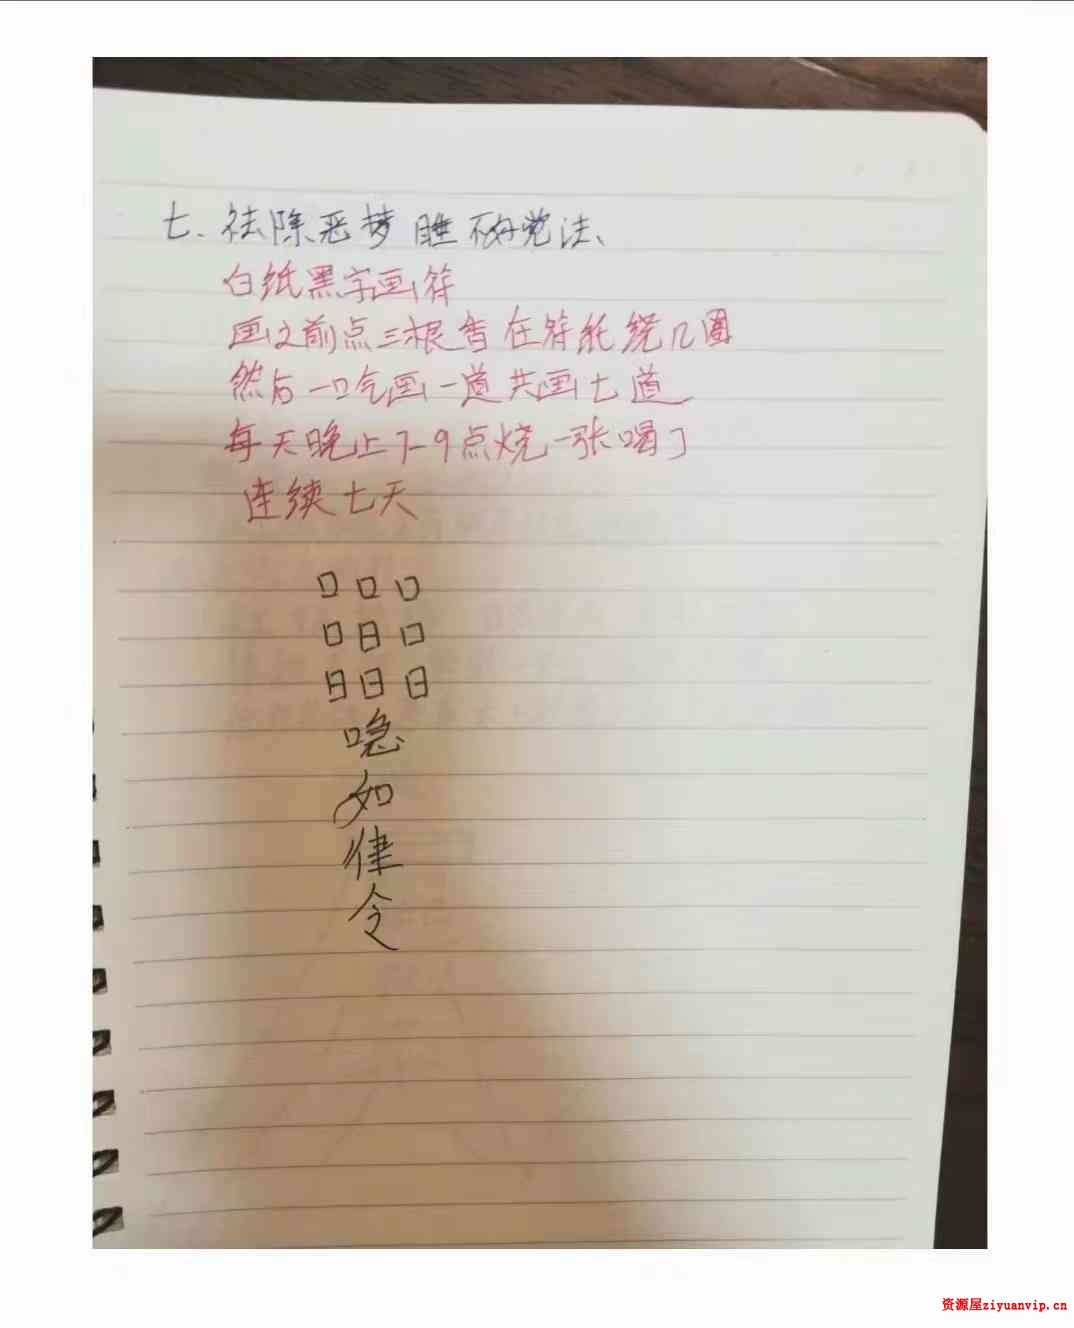 七、祛除恶梦睡不好觉法、
白纸黑字画符
画之前点三根香在符纸绕几圈
然后一口气画一道共画七道
每天晚上7-9点烧一张喝了
连续七天
口口口
口日口
日日日
唸
如
律
令
资源屋ziyuanvip.cn